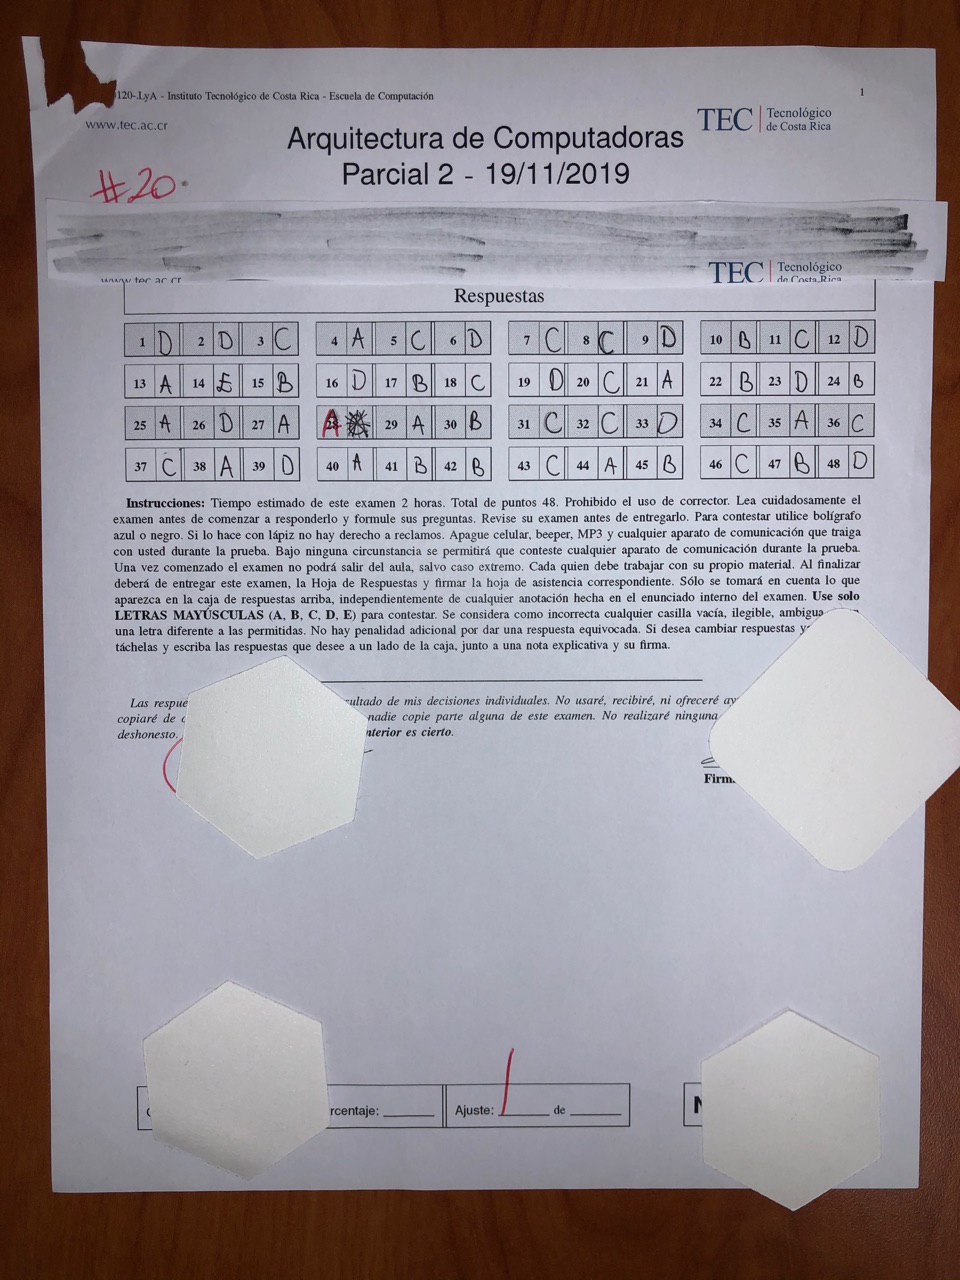 0120-.LyA - Instituto Tecnológico de Costa Rica - Escuela de Computación 1
www.tec.ac.cr
TEC Tecnológico de Costa Rica
Arquitectura de Computadoras
Parcial 2 - 19/11/2019
#20
www.tec.ac.cr
TEC Tecnológico de Costa Rica
Respuestas
1 D 2 D 3 C 4 A 5 C 6 D 7 C 8 C 9 D 10 B 11 C 12 D
13 A 14 E 15 B 16 D 17 B 18 C 19 D 20 C 21 A 22 B 23 D 24 B
25 A 26 D 27 A A 28 29 A 30 B 31 C 32 C 33 D 34 C 35 A 36 C
37 C 38 A 39 D 40 A 41 B 42 B 43 C 44 A 45 B 46 C 47 B 48 D
Instrucciones: Tiempo estimado de este examen 2 horas. Total de puntos 48. Prohibido el uso de corrector. Lea cuidadosamente el
examen antes de comenzar a responderlo y formule sus preguntas. Revise su examen antes de entregarlo. Para contestar utilice bolígrafo
azul o negro. Si lo hace con lápiz no hay derecho a reclamos. Apague celular, beeper, MP3 y cualquier aparato de comunicación que traiga
con usted durante la prueba. Bajo ninguna circunstancia se permitirá que conteste cualquier aparato de comunicación durante la prueba.
Una vez comenzado el examen no podrá salir del aula, salvo caso extremo. Cada quien debe trabajar con su propio material. Al finalizar
deberá de entregar este examen, la Hoja de Respuestas y firmar la hoja de asistencia correspondiente. Sólo se tomará en cuenta lo que
aparezca en la caja de respuestas arriba, independientemente de cualquier anotación hecha en el enunciado interno del examen. Use solo
LETRAS MAYÚSCULAS (A, B, C, D, E) para contestar. Se considera como incorrecta cualquier casilla vacía, ilegible, ambigua
una letra diferente a las permitidas. No hay penalidad adicional por dar una respuesta equivocada. Si desea cambiar respuestas
táchelas y escriba las respuestas que desee a un lado de la caja, junto a una nota explicativa y su firma.
Las respue sultado de mis decisiones individuales. No usaré, recibiré, ni ofreceré ay
copiaré de nadie copie parte alguna de este examen. No realizaré ninguna
deshonesto. nterior es cierto.
Firm
rcentaje: Ajuste: de N